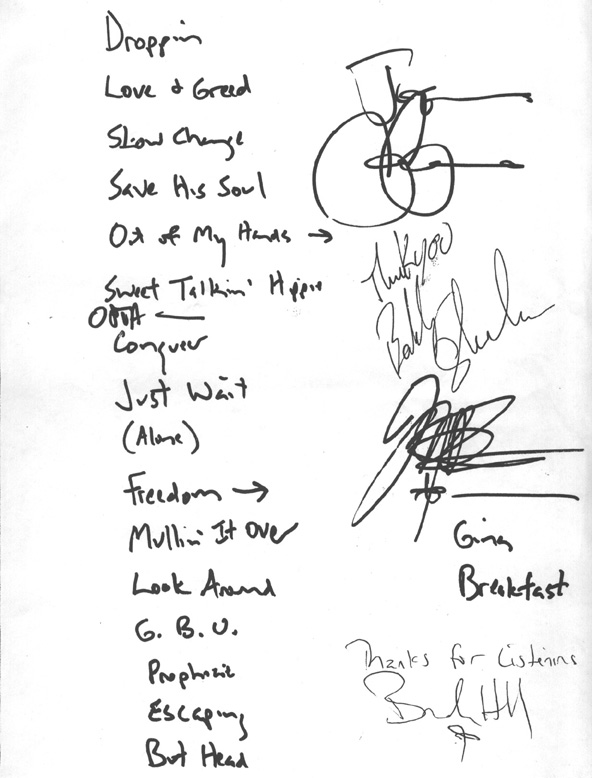 Droppin
Love & Greed
Slow Change
Save His Soul
Out of My Hands →
Sweet Talkin' Hippie
←
Conquer
Just Wait
(Alone)
Freedom →
Mullin' It Over
Look Around
G. B. U.
Prophesie
Escaping
But Head
Thank you
Bobby
Gina
Breakfast
Thanks for Listening